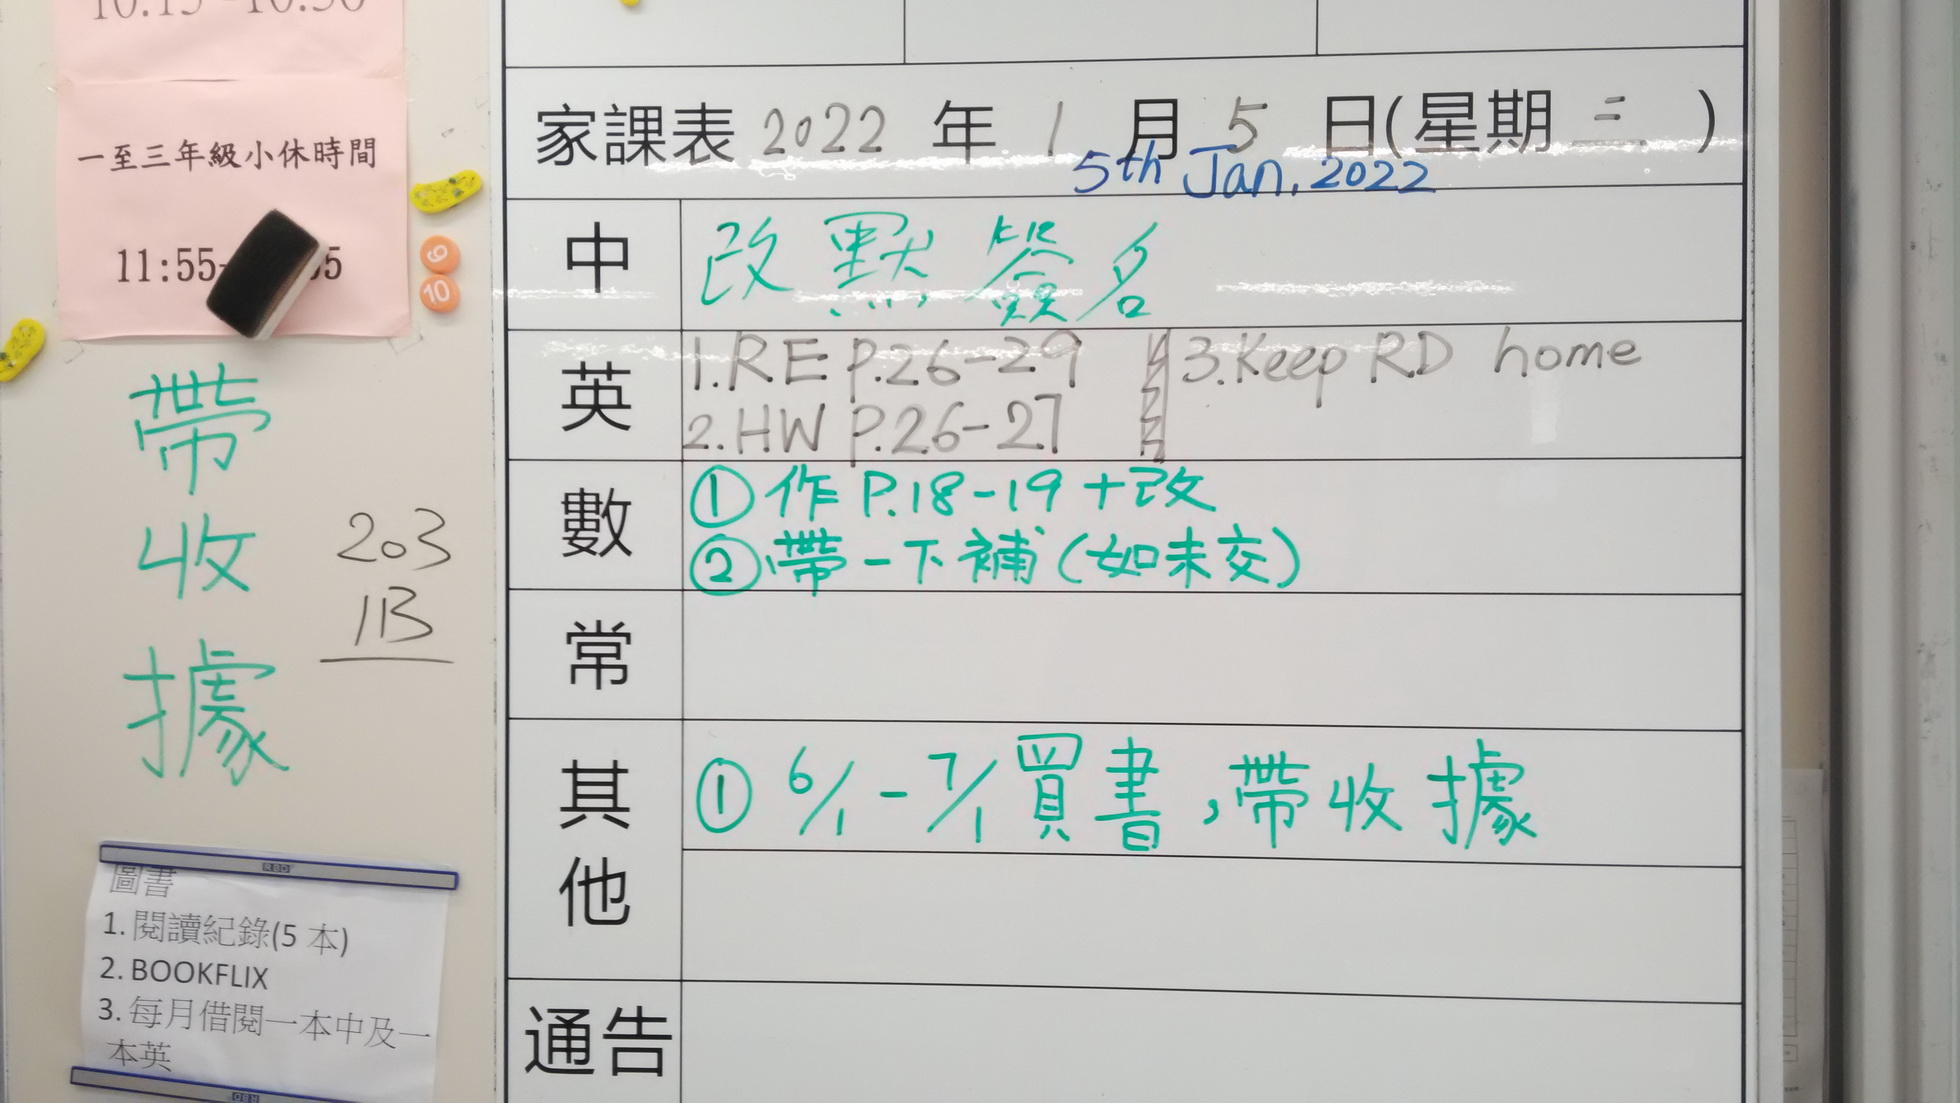 一至三年級小休時間
11:55-
帶
收
據
203
1B
圖書
1. 閱讀紀錄(5 本)
2. BOOKFLIX
3. 每月借閱一本中及一
本英
家課表 2022 年 1 月 5 日(星期 三 )
5th Jan. 2022
中 改默簽名
英
1. RE P.26-29 3. Keep RD home
2. HW P.26-27
數
① 作 P.18-19 + 改
② 帶一下補 (如未交)
常
其他
① 6/1 - 7/1 買書,帶收據
通告